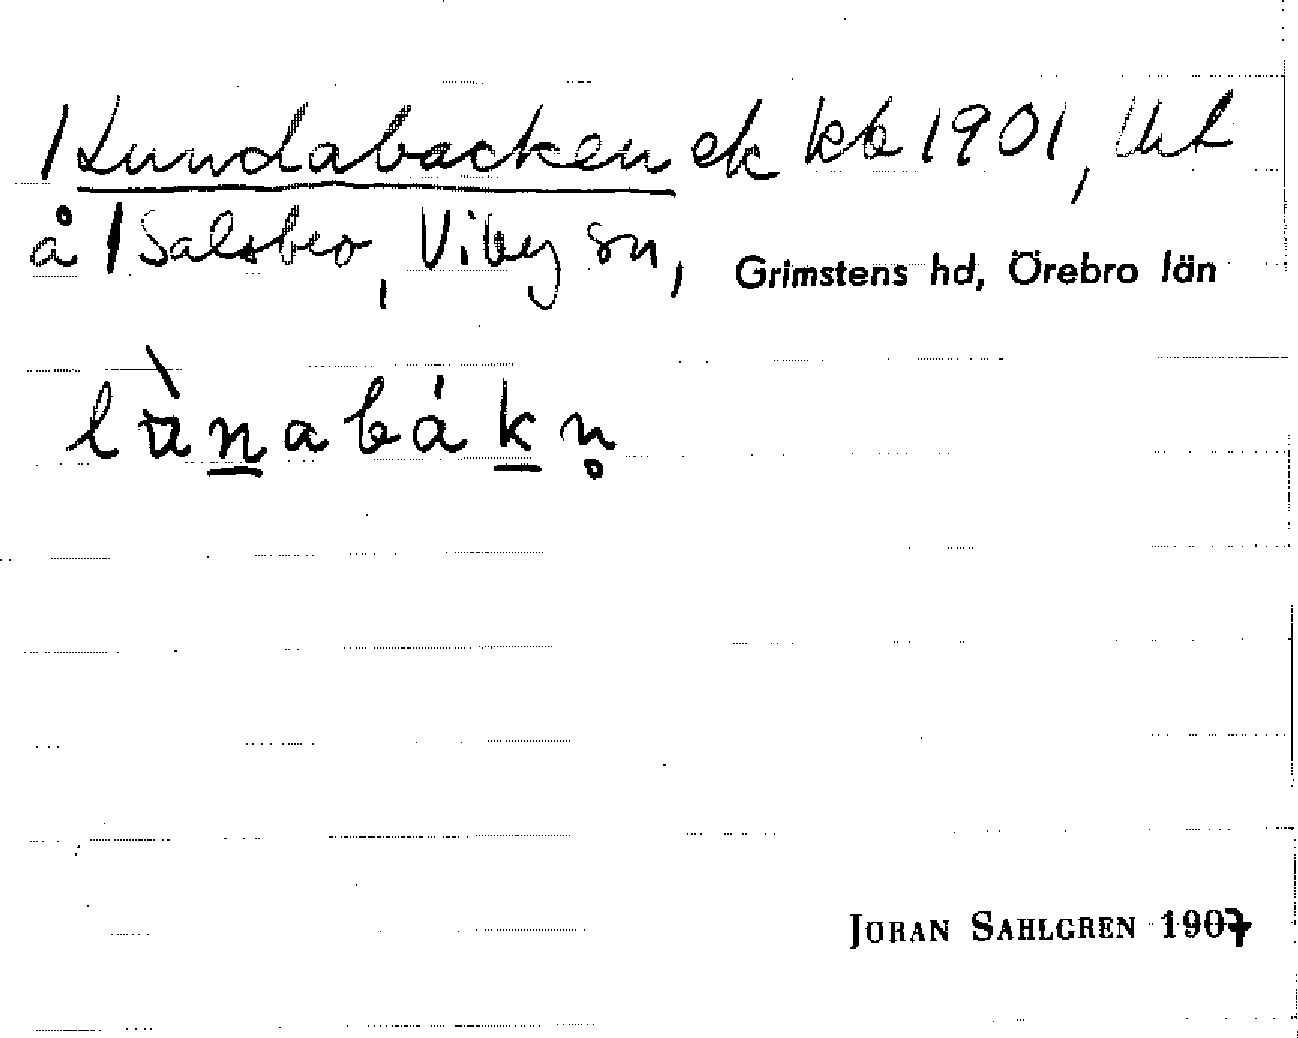 /Lundabacken ek kb 1901, lht
å /Salsbro, Viby sn, Grimstens hd, Örebro län
lùn̲abák̲n̥
JÖRAN SAHLGREN 1907